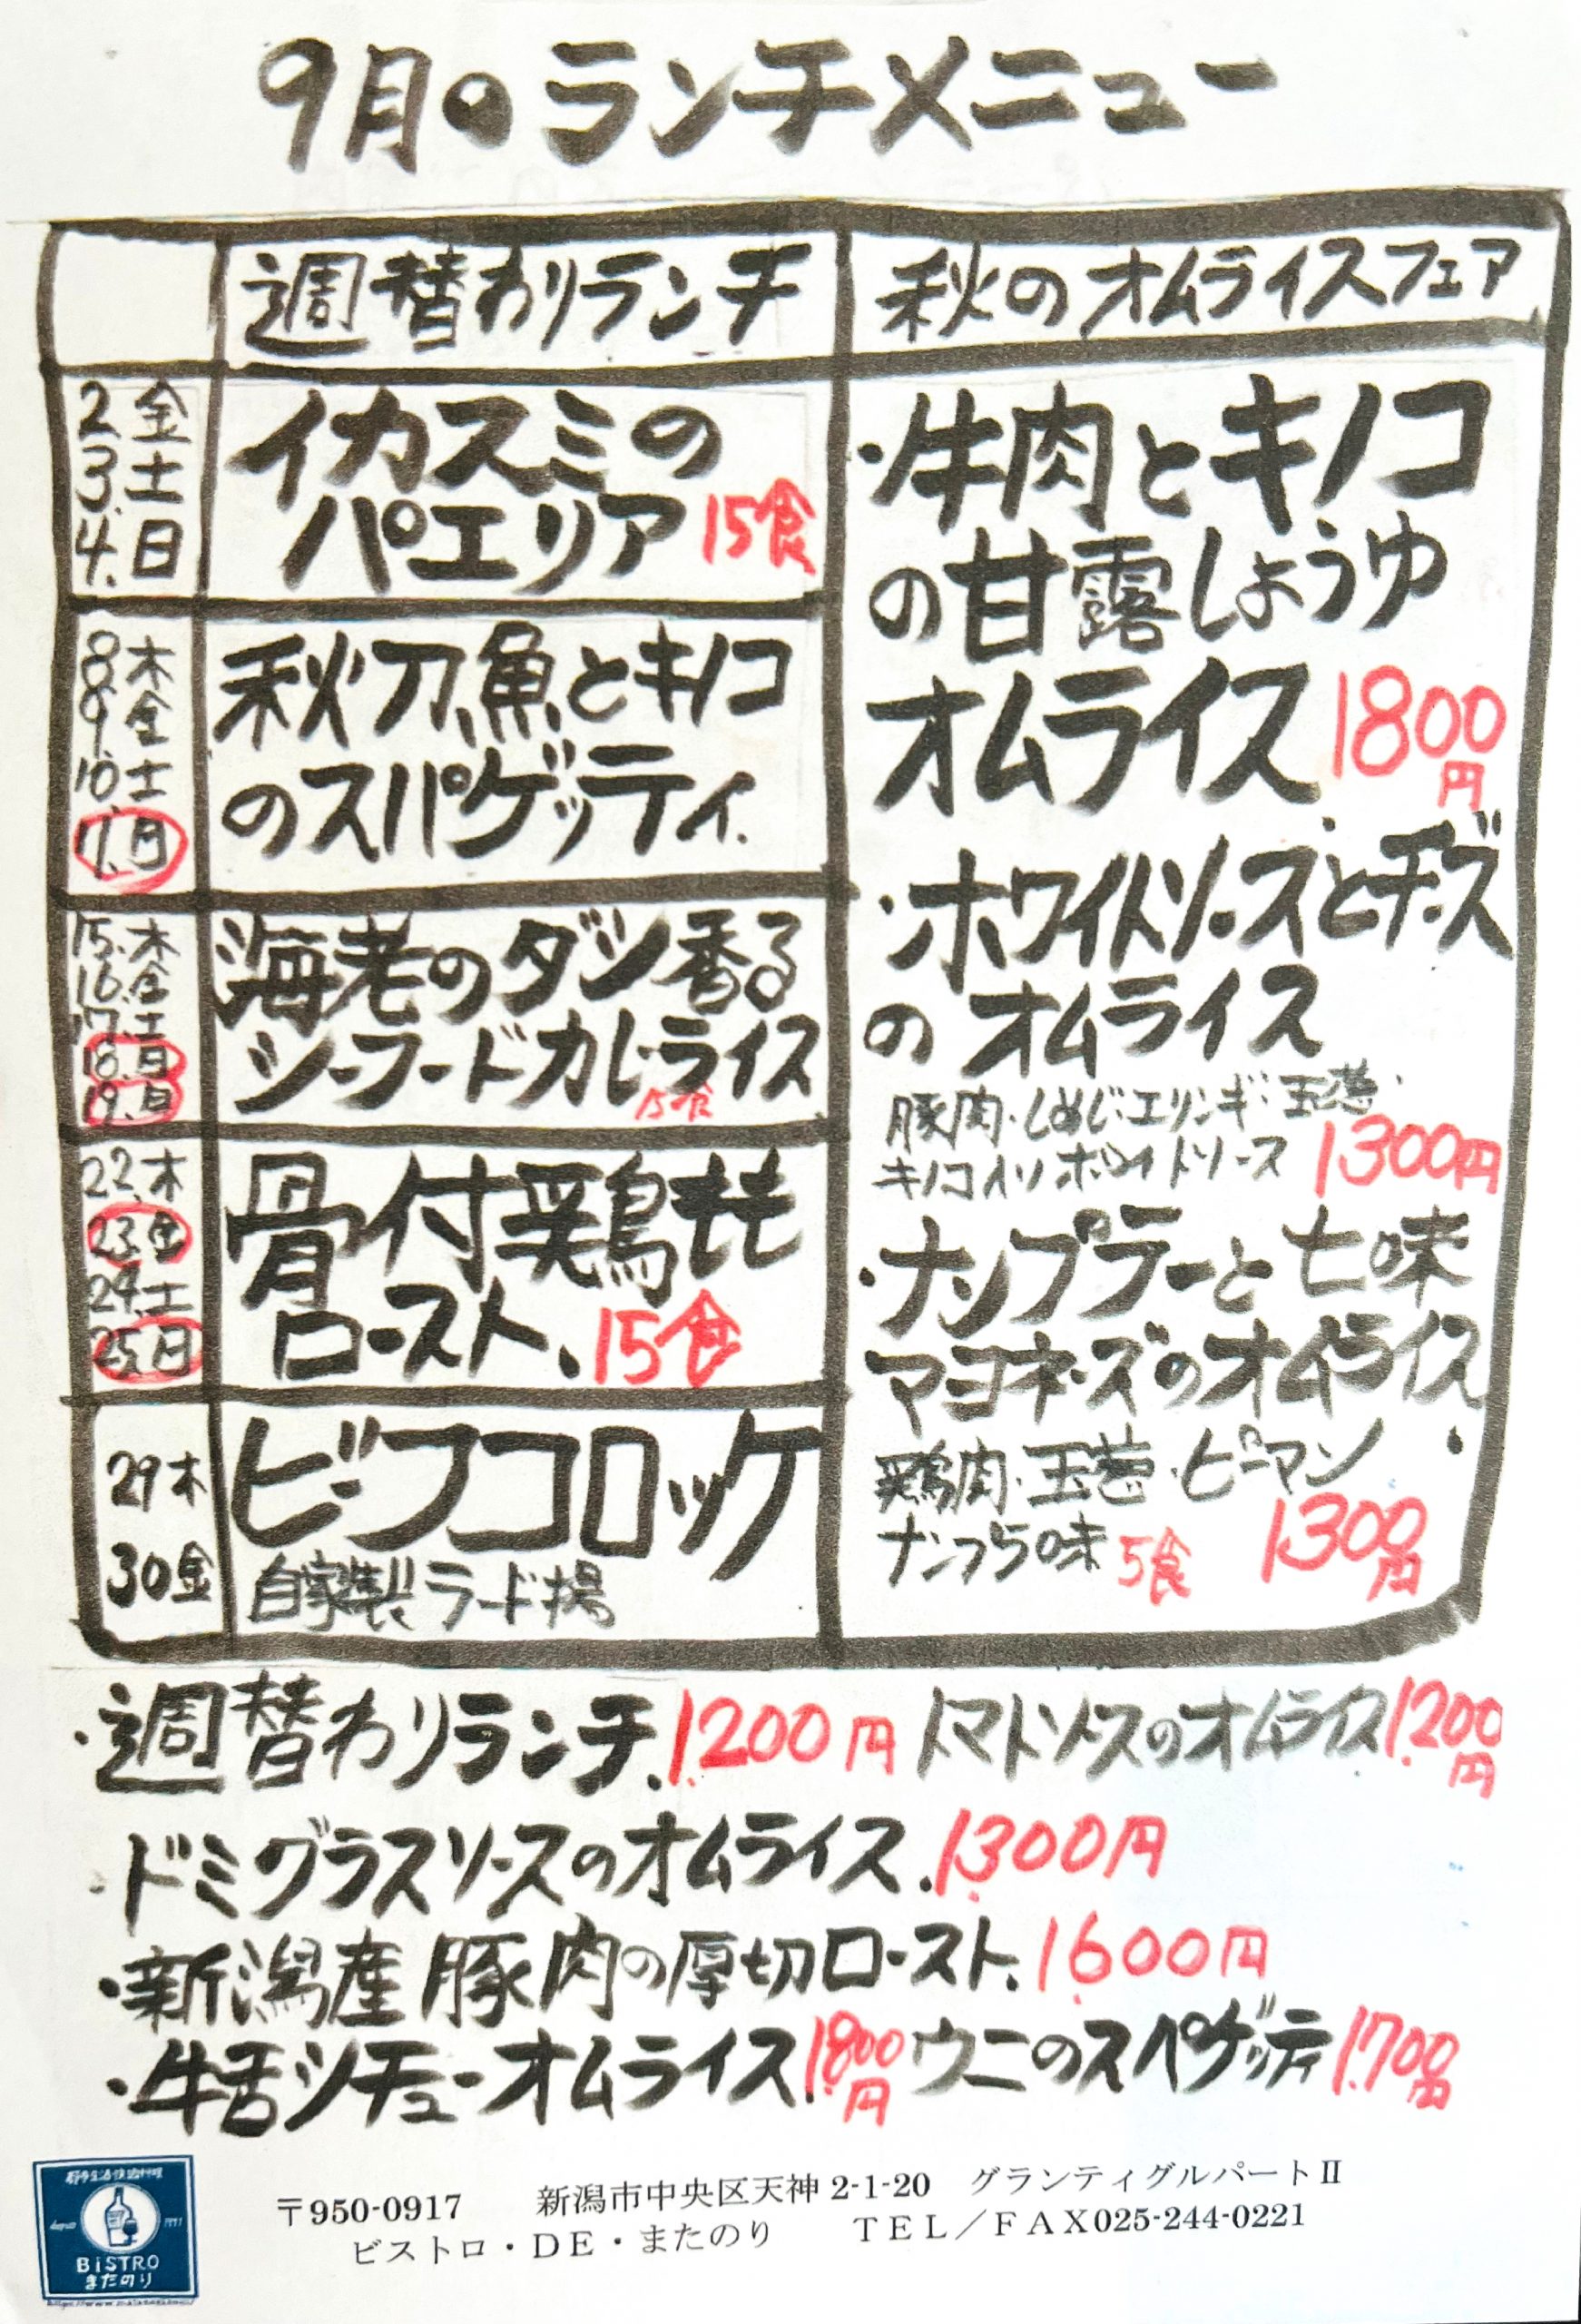 9月のランチメニュー
週替わりランチ
秋のオムライスフェア
2 金
3. 土
4. 日
イカスミの
パエリア 15食
8 木
9 金
10. 土
11. 月
秋刀魚とキノコ
のスパゲッティ
15. 木
16. 金
17. 土
18. 日
19. 月
海老のダシ香る
シーフードカレーライス
15食
22. 木
23. 金
24. 土
25. 日
骨付鶏もも
ロースト、15食
29 木
30 金
ビーフコロッケ
自家製ラード揚
・牛肉とキノコ
の甘露しょうゆ
オムライス 1800円
・ホワイトソースとチーズ
のオムライス
豚肉・しめじ・エリンギ・玉葱・
キノコ入りホワイトソース 1300円
・ナンプラーと七味
マヨネーズのオムライス
鶏肉・玉葱・ピーマン
ナンプラー味 5食 1300円
・週替わりランチ 1.200円 トマトソースのオムライス 1.200円
・ドミグラスソースのオムライス 1.300円
・新潟産豚肉の厚切ロースト 1.600円
・牛舌シチューオムライス 1.800円 ウニのスペゲッティ 1.700円
〒950-0917 新潟市中央区天神2-1-20 グランティグルパートⅡ
ビストロ・DE・またのり TEL／FAX025-244-0221
BiSTRO
またのり